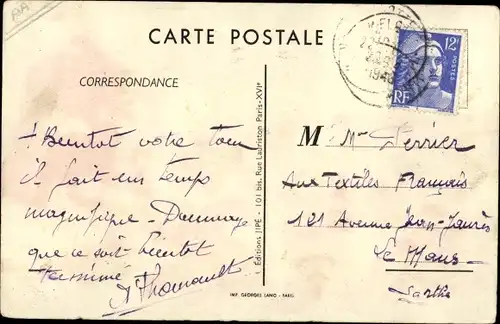 AA
CARTE POSTALE
12F
POSTES
RF
CORRESPONDANCE
A Bientôt votre tour
il fait un temps
magnifique - Dommage
que ce soit bientôt
terminé
Thomault
Mr Perrier
Aux Textiles Français
121 Avenue Jean-Jaurès
Le Mans
Sarthe
Éditions JIPÉ - 101 bis, Rue Lauriston Paris-XVIe
IMP. GEORGES LANG - PARIS